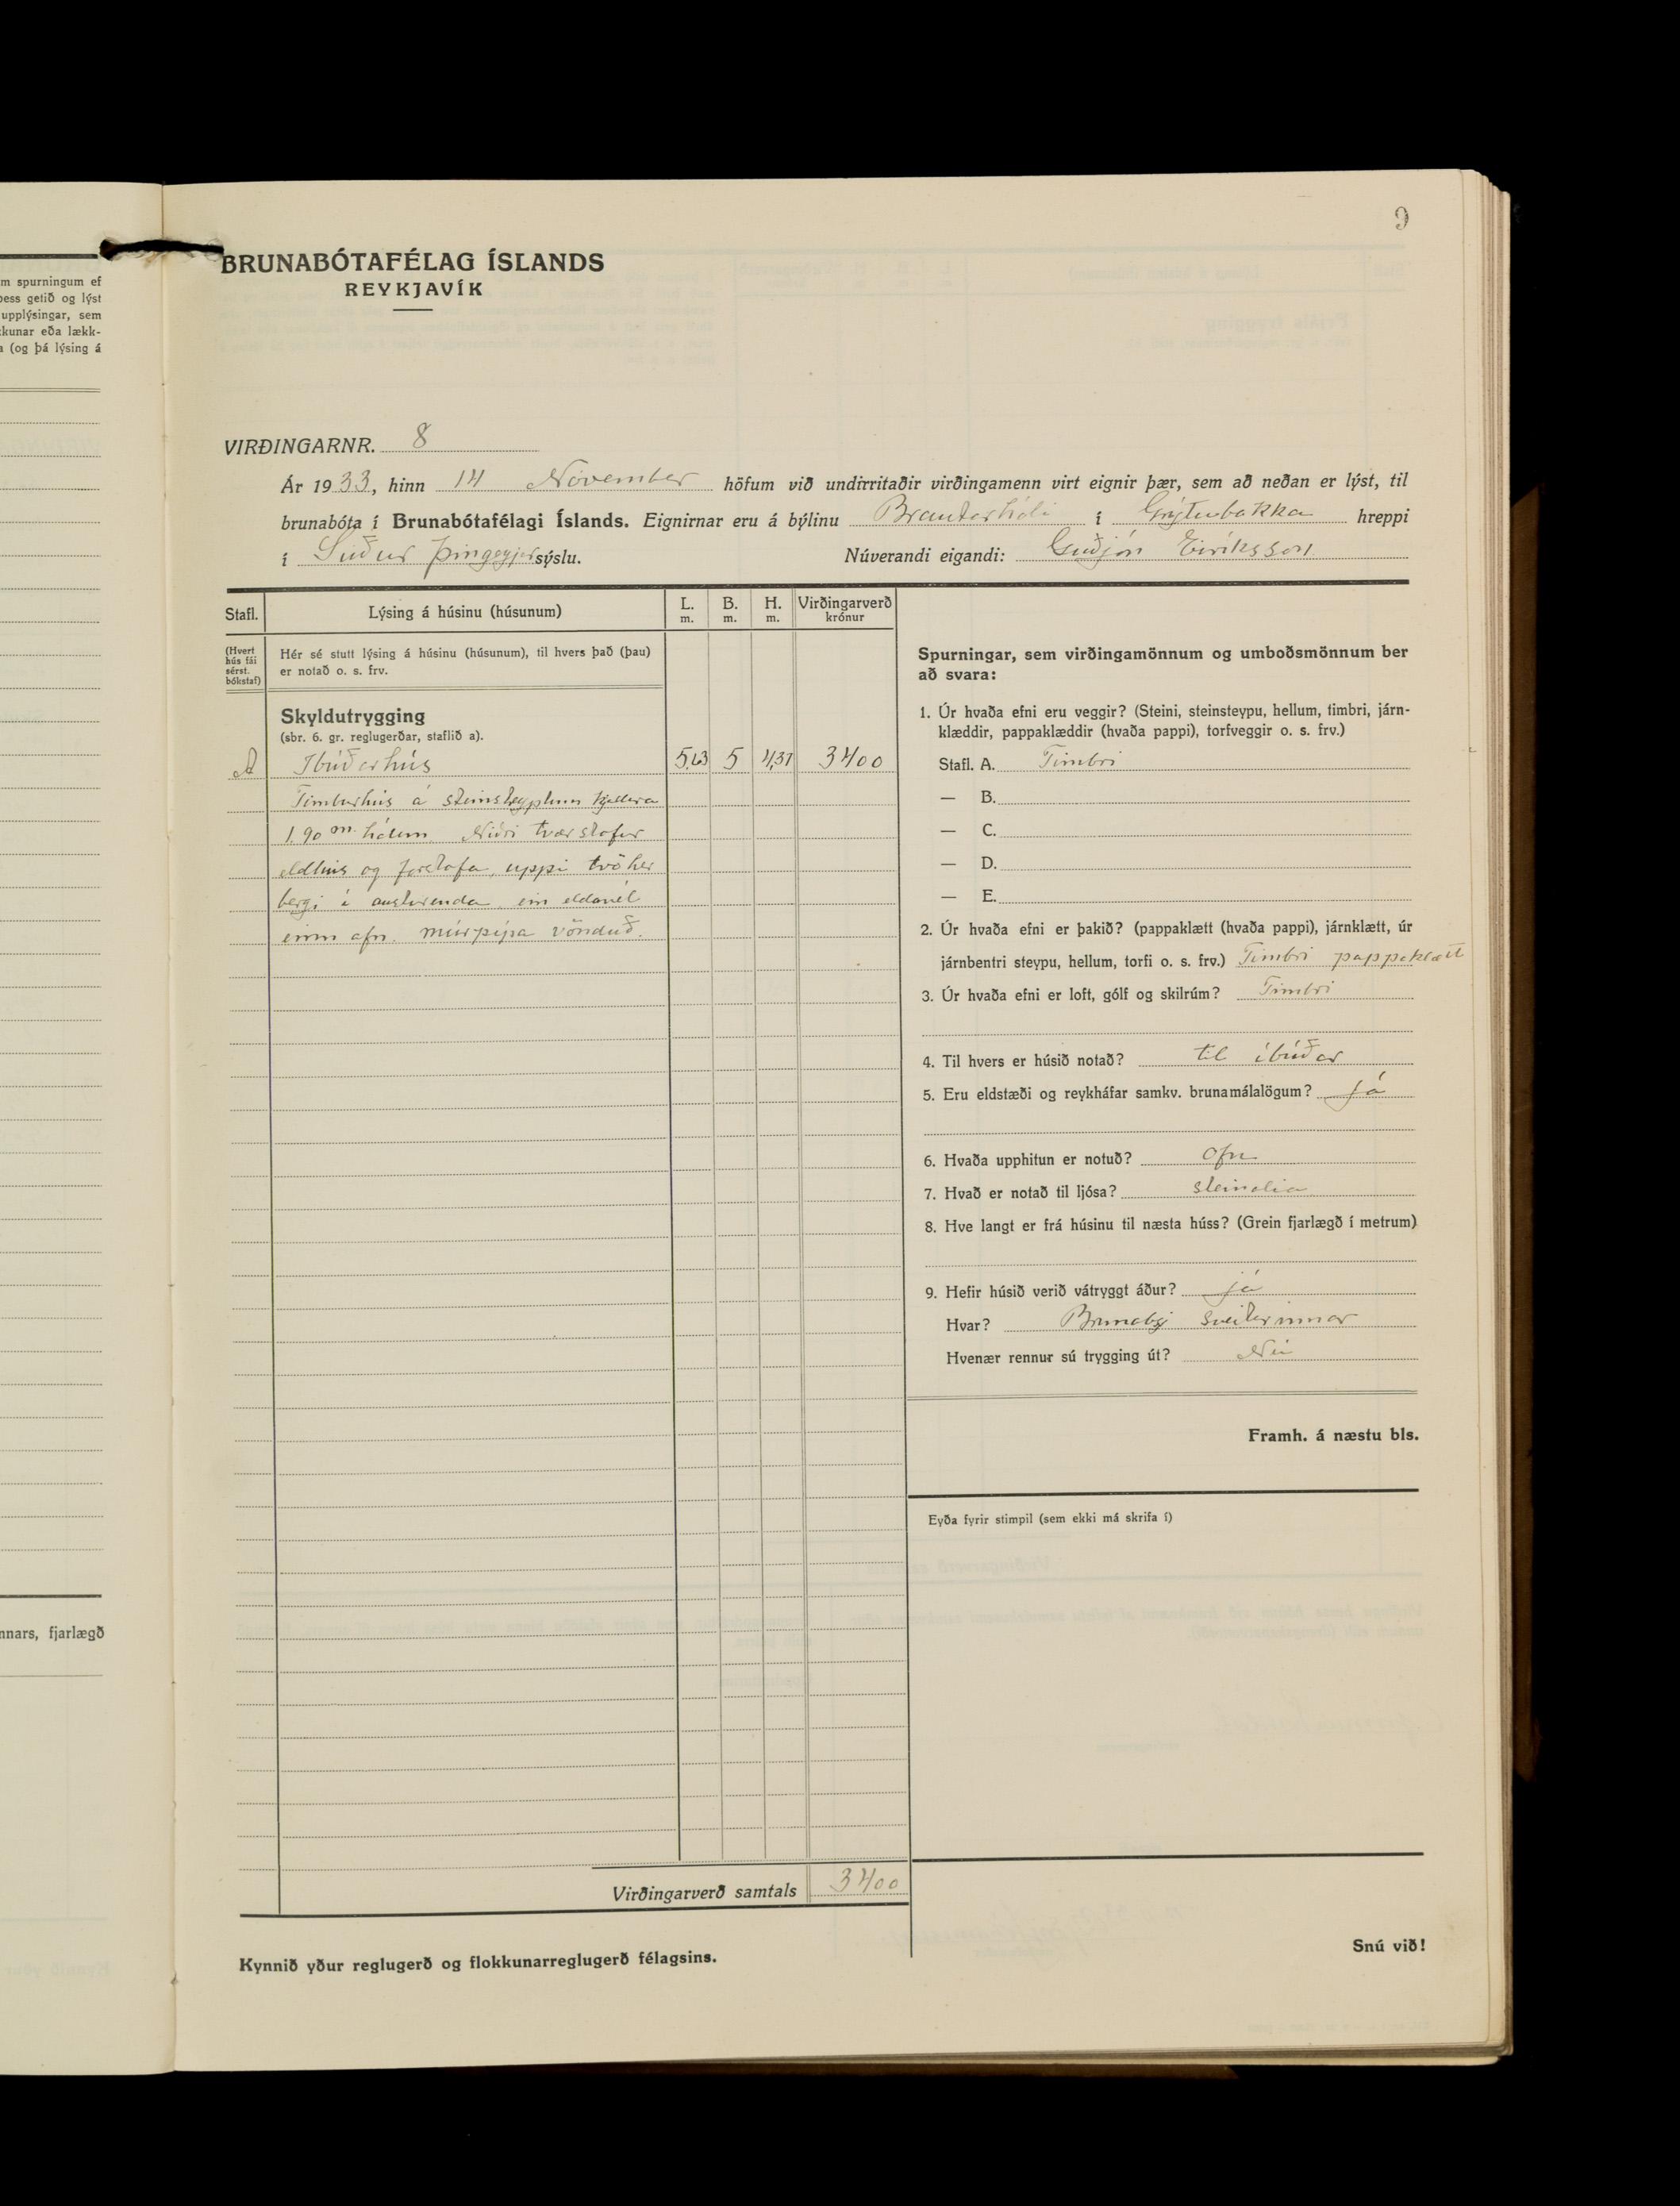 m spurningum ef
þess getið og lýst
upplýsingar, sem
kkunar eða lækk-
a (og þá lýsing á
nnars, fjarlægð
9
BRUNABÓTAFÉLAG ÍSLANDS
REYKJAVÍK
VIRÐINGARNR. 8
Ár 1933, hinn 14 November höfum við undirritaðir virðingamenn virt eignir þær, sem að neðan er lýst, til
brunabóta í Brunabótafélagi Íslands. Eignirnar eru á býlinu Brautarhóli í Grýtubakka hreppi
í Suður Þingeyjarsýslu. Núverandi eigandi: Guðjón Eiríksson
Stafl. Lýsing á húsinu (húsunum) L. m. B. m. H. m. Virðingarverð krónur
(Hvert hús fái sérst. bókstaf)
Hér sé stutt lýsing á húsinu (húsunum), til hvers það (þau)
er notað o. s. frv.
Skyldutrygging
(sbr. 6. gr. reglugerðar, staflið a).
A Íbúðarhús 5,63 5 4,37 3400
Timburhús á steinsteyptum kjallara
1.90 m. háum. Niðri tvær stofur
eldhús og forstofa, uppi tvö her
bergi í austurenda, ein eldavél
einn ofn. múrpípa vönduð.
Virðingarverð samtals 3400
Kynnið yður reglugerð og flokkunarreglugerð félagsins.
Spurningar, sem virðingamönnum og umboðsmönnum ber
að svara:
1. Úr hvaða efni eru veggir? (Steini, steinsteypu, hellum, timbri, járn-
klæddir, pappaklæddir (hvaða pappi), torfveggir o. s. frv.)
Stafl. A. Timbri
— B.
— C.
— D.
— E.
2. Úr hvaða efni er þakið? (pappaklætt (hvaða pappi), járnklætt, úr
járnbentri steypu, hellum, torfi o. s. frv.) Timbri pappaklætt
3. Úr hvaða efni er loft, gólf og skilrúm? Timbri
4. Til hvers er húsið notað? til íbúðar
5. Eru eldstæði og reykháfar samkv. brunamálalögum? já
6. Hvaða upphitun er notuð? ofn
7. Hvað er notað til ljósa? steinolia
8. Hve langt er frá húsinu til næsta húss? (Grein fjarlægð í metrum)
9. Hefir húsið verið vátryggt áður? já
Hvar? Brunabj sveitarinnar
Hvenær rennur sú trygging út? Nú
Framh. á næstu bls.
Eyða fyrir stimpil (sem ekki má skrifa í)
Snú við!